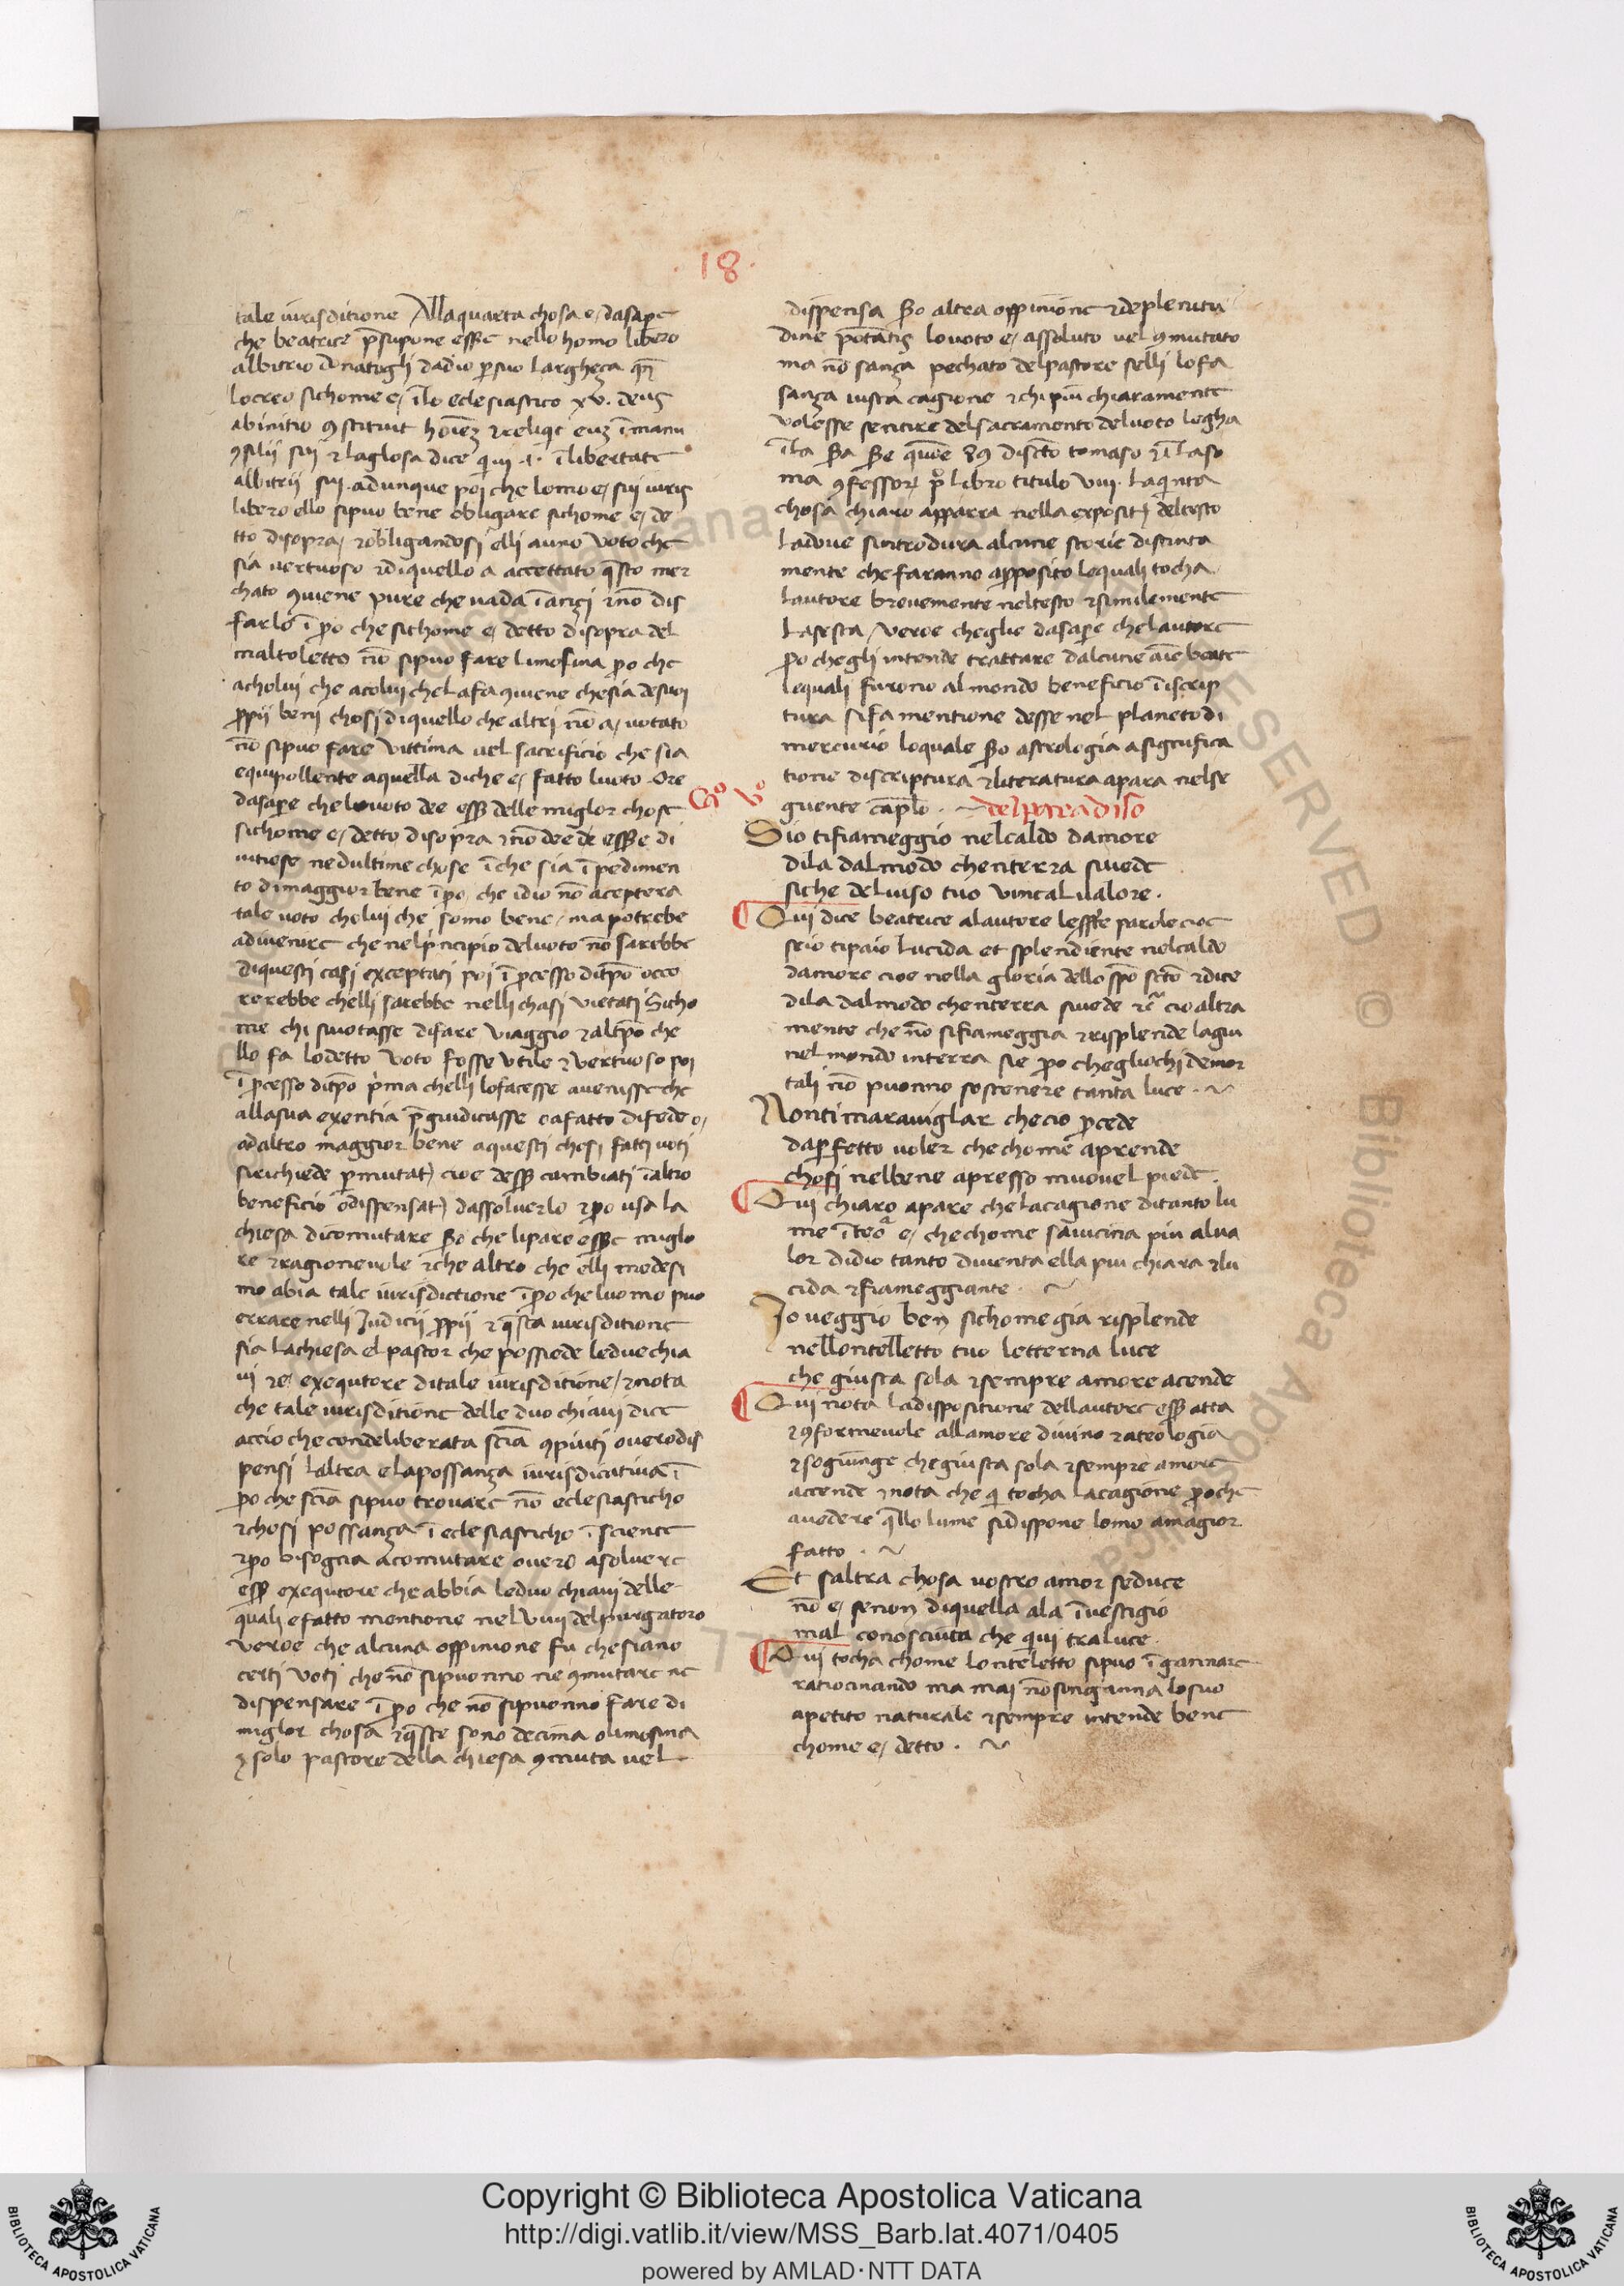 18.
tale iurisditione Alla quarta chosa e, dasapĕ
che beatrice p̄supone esse nello homo libero
albitrio donatogli dadio ꝑsuo larghęça qn̄
locreo sichome e, ĩlo eclesiastico xv. deus
abinitio ꝯstituit hoīez ⁊reliqt euz ĩmanu
ꝯsilii sui ⁊laglosa dice qui .i. ĩlibertate
albitrii sui. adunque poi che lomo e, sui iuris
libero ello sipuo bene obligare sichome e, de
tto disopra, ⁊obligandosi elli auno voto che
sia uertuoso ⁊diquello a accettato q̄sto mer
chato ꝯuiene pure che uada ĩançi ⁊nō dis
farlo ĩ ꝑo che sichome e, detto disopra del
maltoletto nō sipuo fare limosina ꝑo che
acholui che acolui chelafa ꝯuiene chesia desuoi
ꝓpii beni chosi diquello che altri nō a, uotato
nō sipuo fare vittima uel sacrificio che sia
equipollente aquella diche e, fatto luoto. Ore
dasaꝑe che louoto dee esse delle miglor chose
sichome e, detto disopra ⁊nō dee de esse di
uitiose nedultime chose ĩche sia ĩpedimen
to dimaggior bene ĩpo, che idio nō aceptera
tale uoto cholui che somo bene, ma potrebe
adiuenire che nelp̓ncipio deluoto nō sarebbe
diquesti casi exceptati poi ĩ ꝓcesso ditꝑo occo
rerebbe chelli sarebbe nelli chasi uietati Sicho
me chi siuotasse difare viaggio ⁊altꝑo che
llo fa lodetto voto fosse vtile ⁊vertuoso poi
ĩ ꝓcesso ditꝑo p̓ma chelli lofacesse auenisse che
allasua exentia p̄giudicasse oafatto difede o,
adaltro maggior bene aquesti chosi fatti uoti
sirichiede ꝑmutat) cioe desse cambiati ĩaltro
beneficio odispensat) dassoluerlo ⁊ꝑo usa la
chiesa dicomutare ßo che lipare esse miglo
re ⁊ragioneuole ⁊che altro che elli medesi
mo abia tale iurisdictione ĩpo che luomo puo
errare nelli Iudicii ꝓpii ⁊q̄sta iurisditione
sia lachiesa el pastor che possiede leduechia
ui ⁊e, exequtore ditale iurisditione, ⁊nota
che tale iurisditione delle duo chiaui dice
accio che condeliberata scīa ꝯpiuti ouerodis
pensi laltra e lapossança iurisdicatiua ĩ
ꝑo che scīa sipuo trouare nō eclesiasticho
⁊chosi possança ĩ eclesiasticho ĩsciente
⁊ꝑo bisogna acomutare ouero asoluere
esse exequtore che abbia leduo chiaui delle
quali e fatto mentione nel viiii delpurgatoro
veroe che alcuna oppinione fu che siano
certi voti che nō sipuonno ne ꝯmutare ne
dispensare ĩ ꝑo che nō sipuonno fare di
miglor chosa ⁊q̄ste sono decima olimosina
⁊ solo pastore della chiesa ꝯmuta uel
dispensa ßo altra oppinione ⁊deplenitu
dine potatis louoto e, assoluto uel ꝯmutato
ma nō sança pechato delpastore selli lofa
sança iusta cagione ⁊chi piu chiaramente
volesse sentire delsacramento deluoto legha
disc̄to tomaso ⁊ĩlaso
ma ꝯfessor p̊ libro titulo viii. Laqinta
chosa chiaro apparra nella exposit) deltesto
ladoue sintrodura alcune storie distinta
mente che faranno aꝓposito lequali tocha
lautore breuemente neltesto ⁊similemente
Lasesta, veroe cheglie dasaꝑe chelautore
ꝑo chegli intende trattare dalcune aīe beate
lequali furono almondo beneficio ĩdiscrip
tura sifa mentione desse nel planeto di
mercurio loquale ßo astrologia asignifica
tione discriptura ⁊literatura apara nelse
guente capl̄o . ~ delparadiso
Cao Vo
Sio tifiameggio nelcaldo damore
dila dalmodo chenterra siuede
siche deluiso tuo vincalualore.
Qui dice beatrice alautore lesse parole cioe
serio tipaio lucida et splendiente nelcaldo
damore cioe nella gloria dello spō sctō ⁊dice
dila dalmodo chenterra siuede ⁊c̄ cio altra
mente che nō sifiameggia ⁊risplende lagiu
nel mondo interra sie ꝑo chegliochi demor
tali nō puonno sostenere tanta luce . ~
Nonti marauiglar checio ꝓcede
daꝑfetto uoler chechome aprende
chosi nelbene apresso muouel piede.
Qui chiaro apare chelacagione ditanto lu
me ĩteo e, chechome sauicina piu alua
lor didio tanto diuenta ella piu chiara ⁊lu
cida ⁊fiameggiante . ~
Io ueggio ben sichomegia risplende
nellontelletto tuo letterna luce
che giusta sola ⁊sempre amore acende
Qui nota ladispositione dellautore esse atta
⁊ꝯformeuole allamore diuino ⁊ateologia
⁊sogiunge chegiusta sola ⁊sempre amore
accende ⁊nota che qi tocha lacagione ꝑoche
auedere q̄llo lume sidispone lomo amagior
fatto . ~
Et saltra chosa uostro amor seduce
nō e, senon diquella ala ĩuestigio
mal conosciuta che qui traluce.
Qui tocha chome lonteletto sipuo ĩgannare
ratiocinando ma mai nōsinganna losuo
apetito naturale ⁊sempre intende bene
chome e, detto . ~
Copyright © Biblioteca Apostolica Vaticana
http://digi.vatlib.it/view/MSS_Barb.lat.4071/0405
powered by AMLAD·NTT DATA
BIBLIOTECA APOSTOLICA VATICANA
BIBLIOTECA APOSTOLICA VATICANA